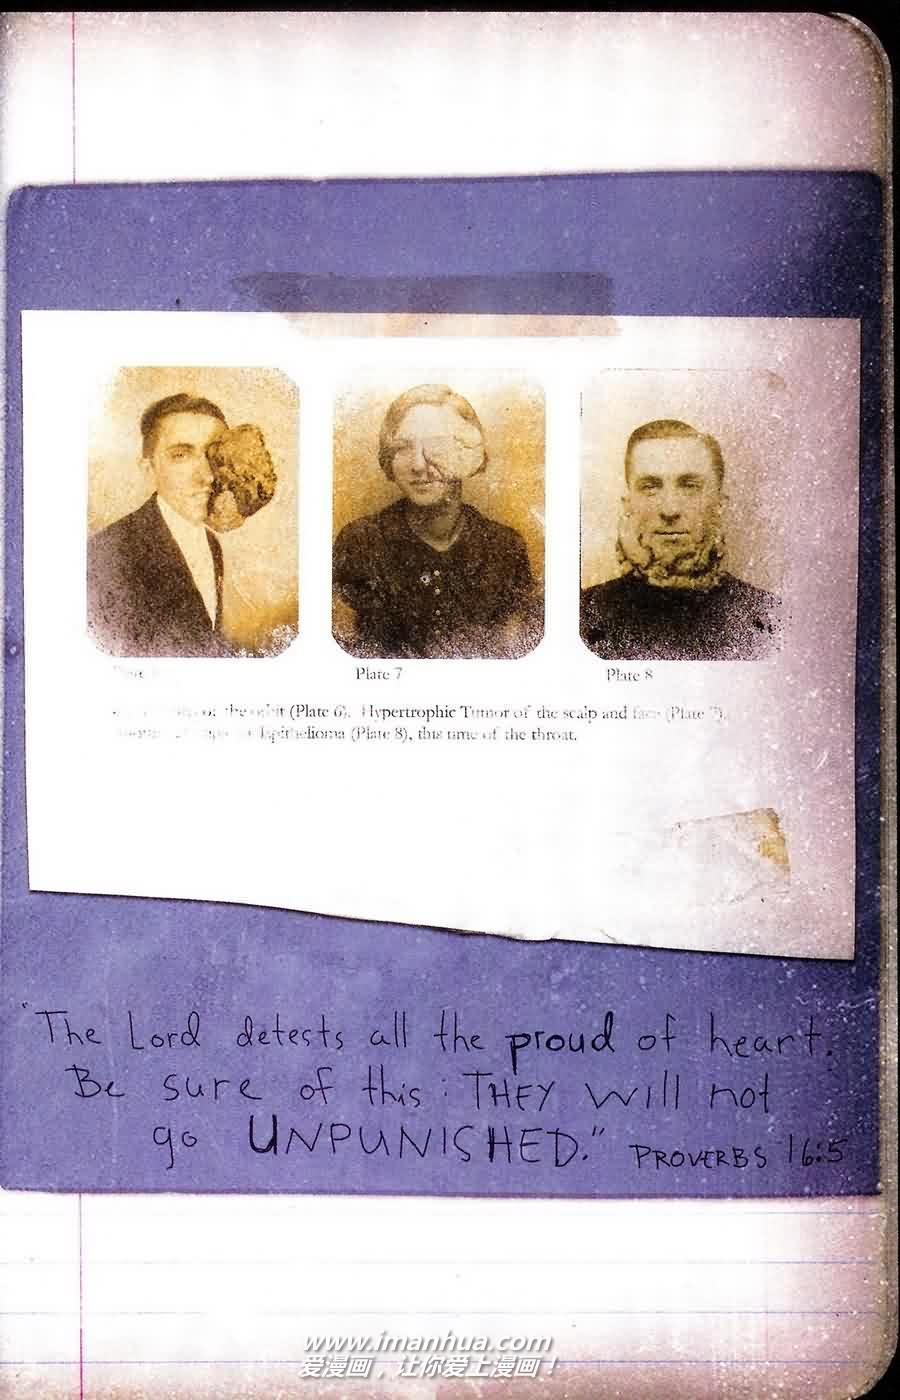 Plate 7
Plate 8
the orbit (Plate 6). Hypertrophic Tumor of the scalp and face (Plate 7).
Epithelioma (Plate 8), this time of the throat.
"The Lord detests all the proud of heart.
Be sure of this: THEY will not
go UNPUNISHED."
PROVERBS 16:5
www.imanhua.com
爱漫画，让你爱上漫画！